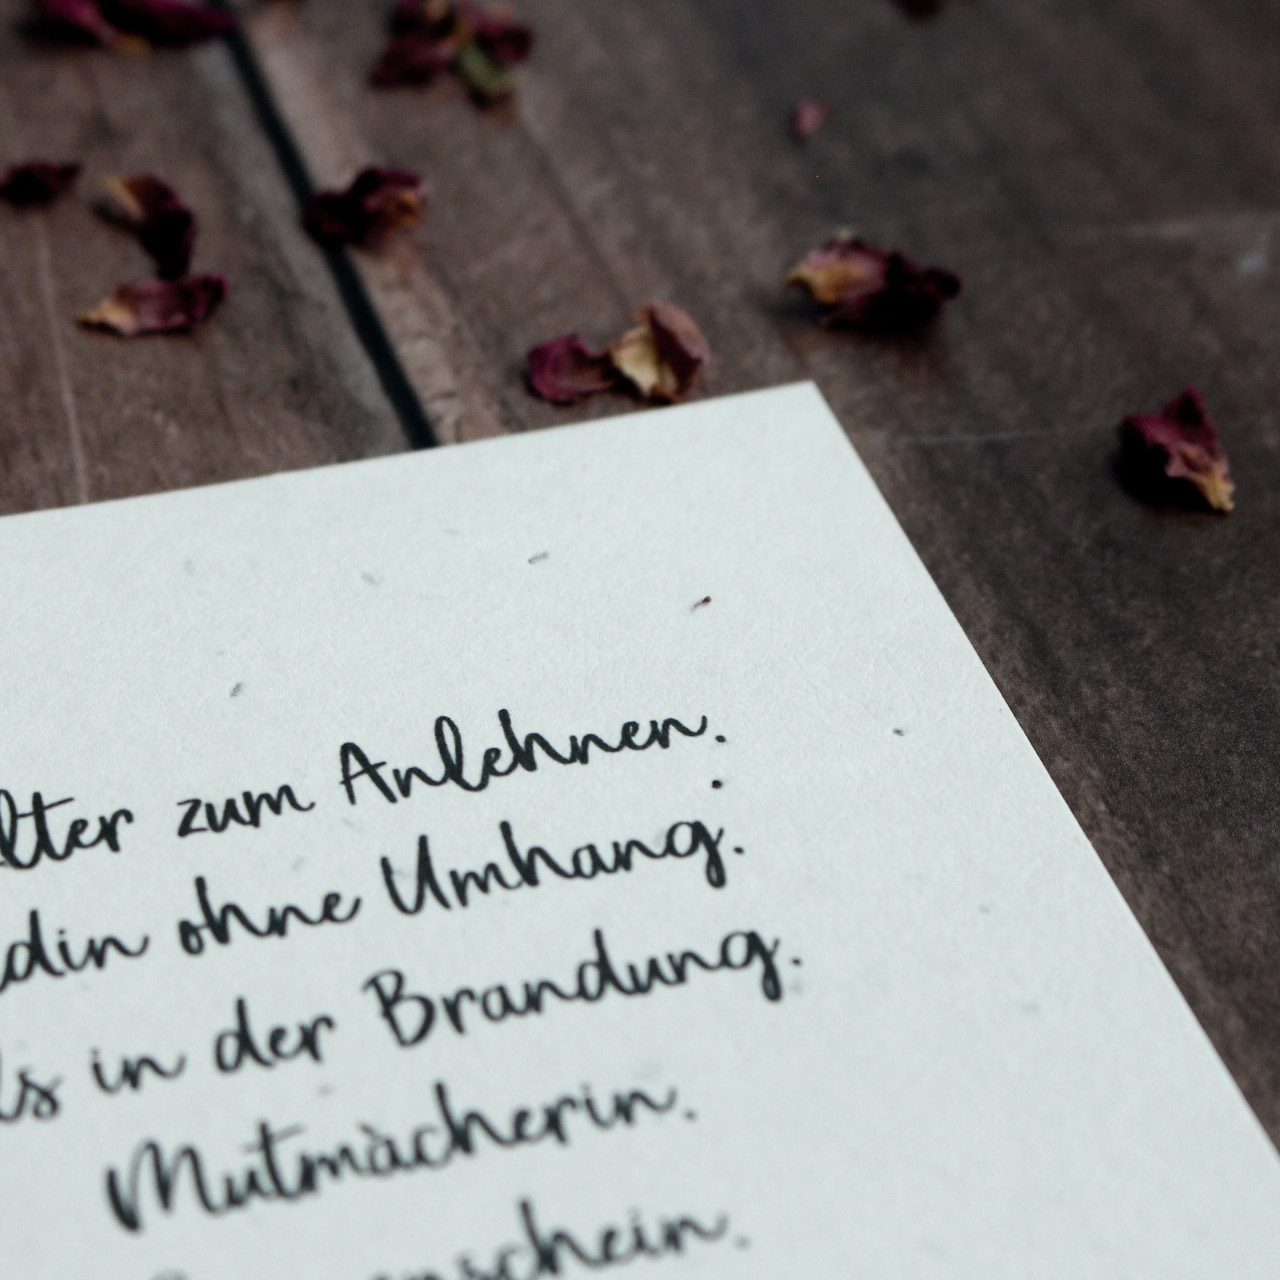 lter zum Anlehnen.
din ohne Umhang.
ls in der Brandung.
Mutmacherin.
nschein.